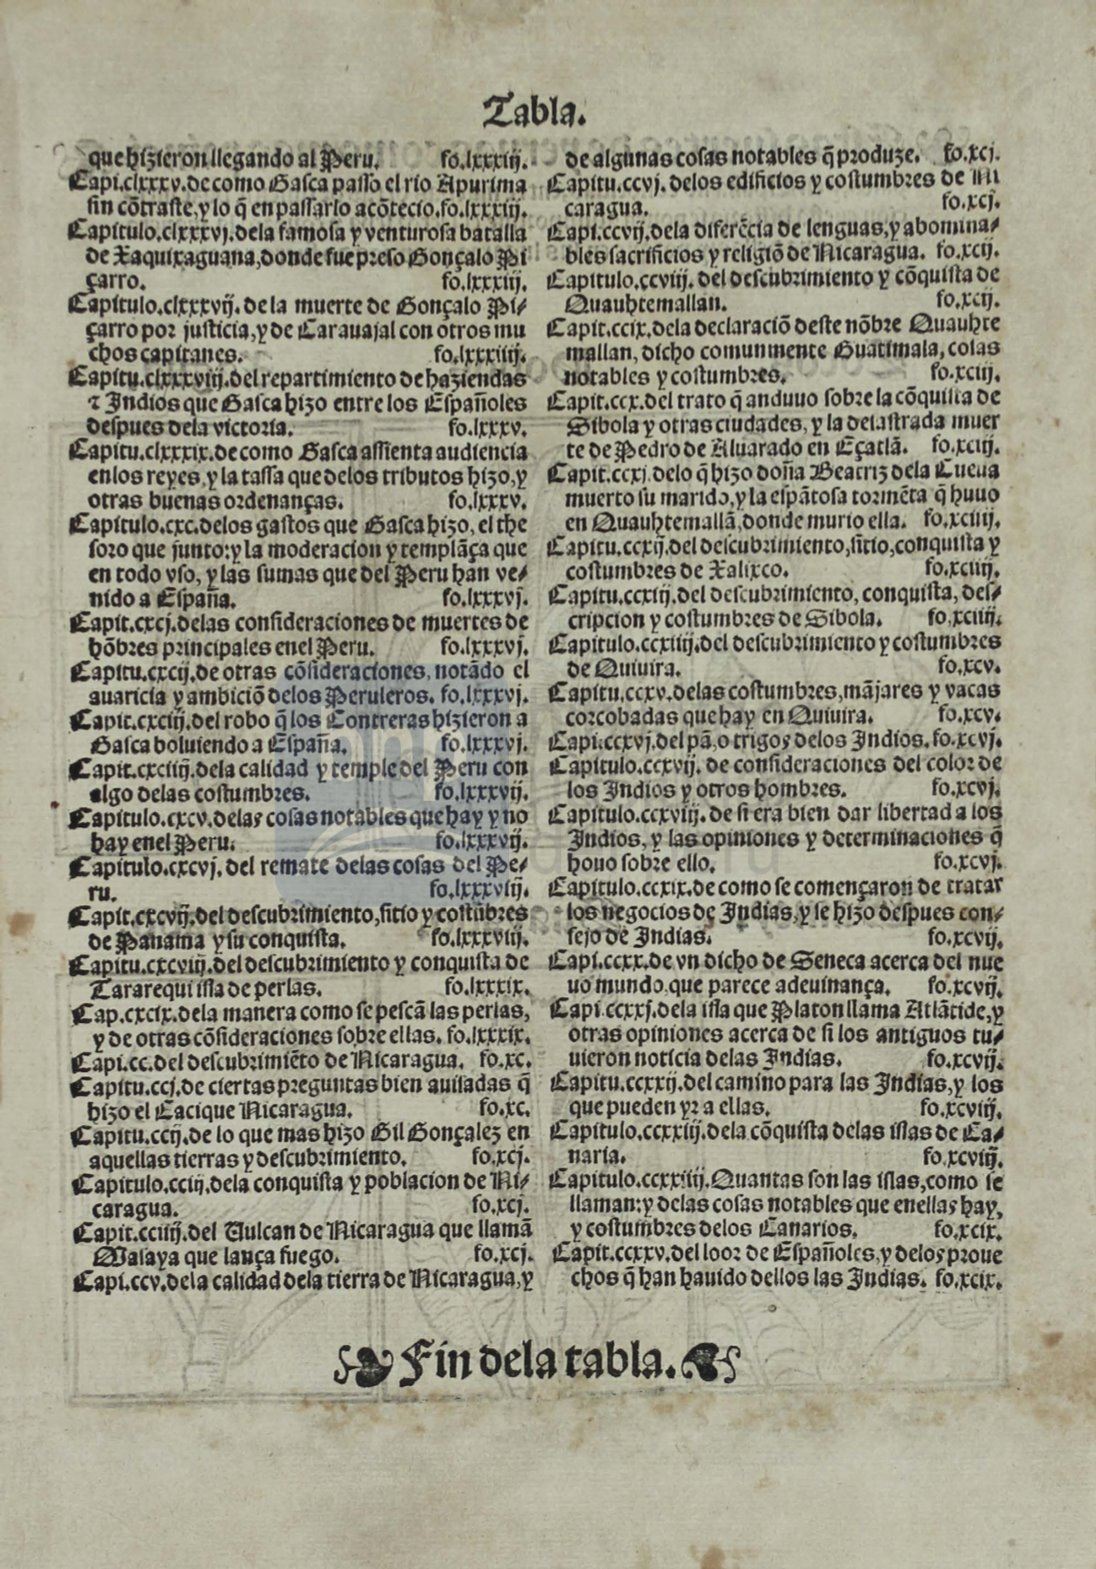 Tabla.
que hizieron llegando al Peru. fo.lxxxiij.
Capi.clxxxv.de como Gasca passo el rio Apurima
sin cõtraste,y lo q̃ en passarlo acõtecio.fo.lxxxiij.
Capitulo.clxxxvj.dela famosa y venturosa batalla
de Xaquixaguana,donde fue preso Gonçalo Pi
çarro. fo.lxxxiij.
Capitulo.clxxxvij.de la muerte de Gonçalo Pi-
çarro por justicia,y de Carauajal con otros mu
chos capitanes. fo.lxxxiiij.
Capitu.clxxxviij.del repartimiento de haziendas
⁊ Indios que Gasca hizo entre los Españoles
despues dela victoria. fo.lxxxv.
Capitu.clxxxix.de como Gasca assienta audiencia
enlos reyes,y la tassa que delos tributos hizo,y
otras buenas ordenanças. fo.lxxxv.
Capitulo.cxc.delos gastos que Gasca hizo,el the
soro que junto:y la moderacion y templãça que
en todo vso, y las sumas que del Peru han ve-
nido a España. fo.lxxxvj.
Capit.cxcj.delas consideraciones de muertes de
hõbres principales enel Peru. fo.lxxxvj.
Capitu.cxcij.de otras cõsideraciones, notãdo el
auaricia y ambiciõ delos Peruleros. fo.lxxxvj.
Capit.cxciij.del robo q̃ los Contreras hizieron a
Gasca boluiendo a España. fo.lxxxvj.
Capit.cxciiij.dela calidad y temple del Peru con
algo delas costumbres. fo.lxxxvij.
Capitulo.cxcv.delas cosas notables que hay y no
hay enel Peru. fo.lxxxvij.
Capitulo.cxcvj. del remate delas cosas del Pe-
ru. fo.lxxxviij.
Capit.cxcvij.del descubrimiento,sitio y costũbres
de Panama y su conquista. fo.lxxxviij.
Capitu.cxcviij.del descubrimiento y conquista de
Tararequi isla de perlas. fo.lxxxix.
Cap.cxcix.dela manera como se pescã las perlas,
y de otras cõsideraciones sobre ellas. fo.lxxxix.
Capi.cc.del descubrimiẽto de Nicaragua. fo.xc.
Capitu.ccj.de ciertas preguntas bien auisadas q̃
hizo el Cacique Nicaragua. fo.xc.
Capitu.ccij.de lo que mas hizo Gil Gonçalez en
aquellas tierras y descubrimiento. fo.xcj.
Capitulo.cciij.dela conquista y poblacion de Ni-
caragua. fo.xcj.
Capit.cciiij.del Vulcan de Nicaragua que llamã
Masaya que lança fuego. fo.xcj.
Capi.ccv.dela calidad dela tierra de Nicaragua,y
de algunas cosas notables q̃ produze. fo.xcj.
Capitu.ccvj. delos edificios y costumbres de Ni
caragua. fo.xcj.
Capi.ccvij.dela diferẽcia de lenguas,y abomina-
bles sacrificios y religiõ de Nicaragua. fo.xcij.
Capitulo.ccviij. del descubrimiento y cõquista de
Quauhtemallan. fo.xcij.
Capit.ccix.dela declaraciõ deste nõbre Quauhte
mallan, dicho comunmente Guatimala, cosas
notables y costumbres. fo.xciij.
Capit.ccx.del trato q̃ anduuo sobre la cõquista de
Sibola y otras ciudades, y la desastrada muer
te de Pedro de Aluarado en Eçatlã. fo.xciij.
Capit.ccxj.delo q̃ hizo doña Beatriz dela Cueua
muerto su marido,y la espãtosa tormẽta q̃ huuo
en Quauhtemallã,donde murio ella. fo.xciiij.
Capitu.ccxij.del descubrimiento,sitio,conquista y
costumbres de Xalixco. fo.xciiij.
Capitu.ccxiij.del descubrimiento, conquista, des-
cripcion y costumbres de Sibola. fo.xciiij.
Capitulo.ccxiiij.del descubrimiento y costumbres
de Quiuira. fo.xcv.
Capitu.ccxv.delas costumbres,mãjares y vacas
corcobadas que hay en Quiuira. fo.xcv.
Capi.ccxvj.del pã,o trigos delos Indios.fo.xcvj.
Capitulo.ccxvij. de consideraciones del color de
los Indios y otros hombres. fo.xcvj.
Capitulo.ccxviij.de si era bien dar libertad a los
Indios, y las opiniones y determinaciones q̃
houo sobre ello. fo.xcvj.
Capitulo.ccxix.de como se començaron de tratar
los negocios de Indias,y se hizo despues con-
sejo de Indias. fo.xcvij.
Capi.ccxx.de vn dicho de Seneca acerca del nue
uo mundo,que parece adeuinança. fo.xcvij.
Capi.ccxxj.dela isla que Platon llama Atlãtide,y
otras opiniones acerca de si los antiguos tu-
uieron noticia delas Indias. fo.xcvij.
Capitu.ccxxij.del camino para las Indias,y los
que pueden yr a ellas. fo.xcviij.
Capitulo.ccxxiij.dela cõquista delas islas de Ca-
naria. fo.xcviij.
Capitulo.ccxxiiij.Quantas son las islas,como se
llaman:y delas cosas notables que enellas hay,
y costumbres delos Canarios. fo.xcix.
Capit.ccxxv.del loor de Españoles,y delos proue
chos q̃ han hauido dellos las Indias. fo.xcix.
Fin dela tabla.